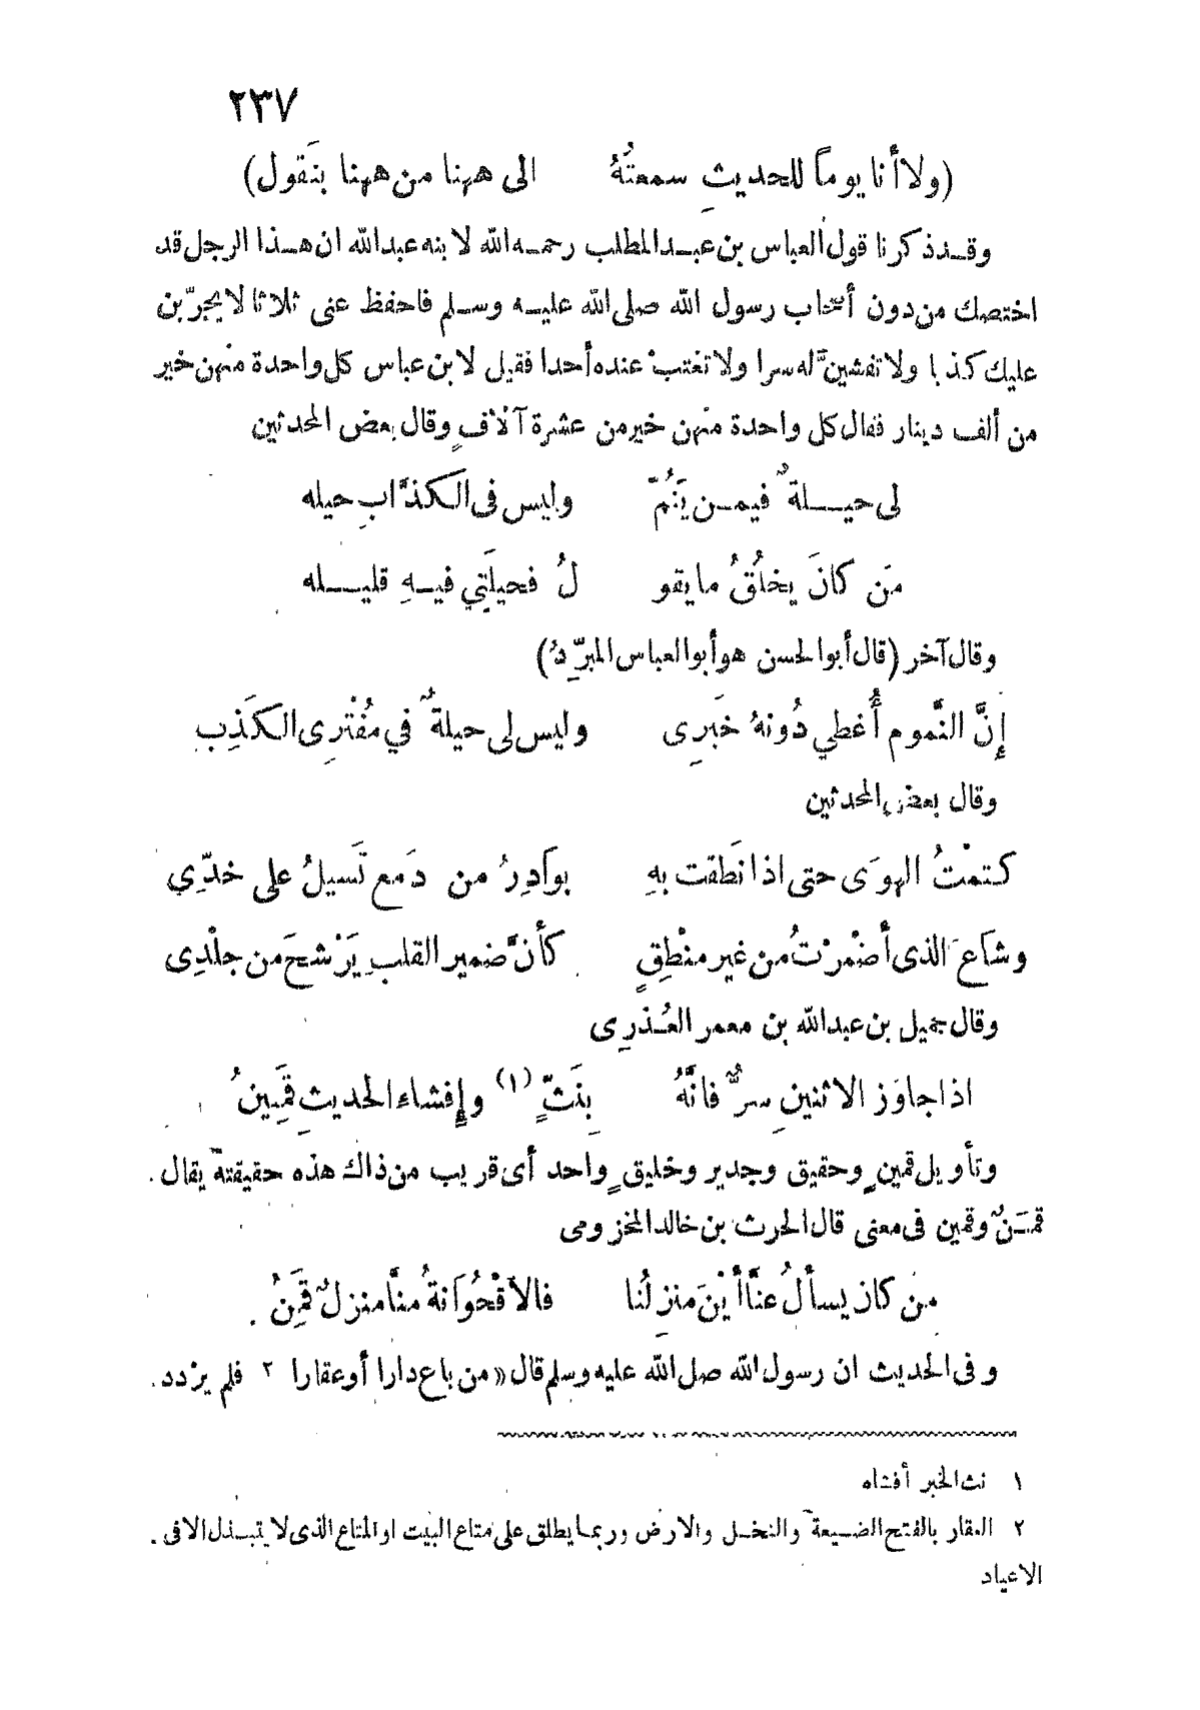 ٢٣٧
(ولا أنا يوماً للحديثِ سمعتُهُ الى ههنا من ههنا بنَقول)
وقد ذكرنا قول العباس بن عبد المطلب رحمه الله لابنه عبدالله ان هذا الرجل قد
اختصك من دون أصحاب رسول الله صلى الله عليه وسلم فاحفظ عنى ثلاثا لا يجرّبن
عليك كذبا ولا تفشينّ له سرا ولا تغتبْ عنده أحدا فقيل لابن عباس كل واحدة منهن خير
من ألف دينار فقال كل واحدة منهن خير من عشرة آلافٍ وقال بعض المحدثين
لى حيلةٌ فيمن يَنُمّ وليس فى الكذَّابِ حيله
مَن كانَ يخلُقُ ما يقو لُ فحيلَتِي فيهِ قليله
وقال آخر (قال أبوالحسن هو أبوالعباس المبرّدُ)
إِنَّ النَّموم أُغطي دُونهُ خبَرِى وليس لى حيلةٌ في مُفْتَرِى الكَذِبِ
وقال بعض المحدثين
كتمْتُ الهوَى حتى اذا نَطَقت بهِ بوَادِرُ من دَمع تَسيلُ على خدّي
وشاعَ الذى أضْمرْتُ من غير منْطِقٍ كأنَّ ضمير القلبِ يَرْشحَ من جلْدِى
وقال جميل بن عبدالله بن معمر العُذرِى
اذا جاوَز الاثنينِ سرٌّ فانَّهُ بِنَثٍّ (١) وإِفشاء الحديثِ قَمِينُ
وتأويل قمينٍ وحقيق وجدير وخليقٍ واحد أى قريب من ذاك هذه حقيقته يقال
قمَنٌ وقمين فى معنى قال الحرث بن خالد المخزومى
من كان يسألُ عنَّا أيْنَ منزِلُنا فالأقْحُوَانةُ منَّا منزلٌ قَمِنُ
وفى الحديث ان رسول الله صلى الله عليه وسلم قال «من باع دارا أو عقارا ٢ فلم يرْدد
١ نث الخبر أفشاه
٢ العقار بالفتح الضيعة والنخل والارض وربما يطلق على متاع البيت او المتاع الذى لا يتبذل الا فى
الاعياد